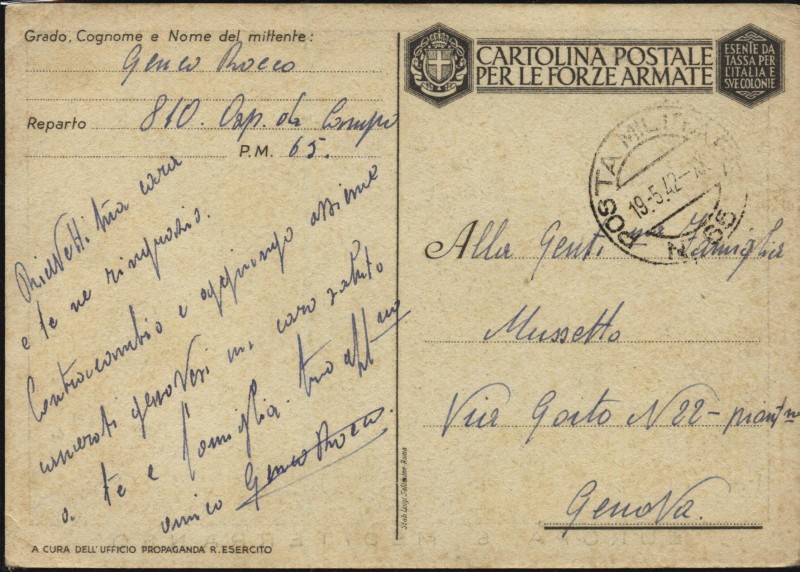 Grado, Cognome e Nome del mittente:
Genco Rocco
Reparto 810. Osp. da Campo
P.M. 65.
Ricevetti tua cara
e te ne ringrazio.
Contraccambio e aggiungo assieme
genovesi un caro saluto
a te e famiglia. tuo aff mo
amico Genco Rocco.
A CURA DELL'UFFICIO PROPAGANDA R. ESERCITO
CARTOLINA POSTALE
PER LE FORZE ARMATE
ESENTE DA
TASSA PER
L'ITALIA E
SVE COLONIE
POSTA MILITARE
19.5.42-XX
N 65
Alla Gent. ma Famiglia
Mussetto
Via Goito N 22-
Genova.